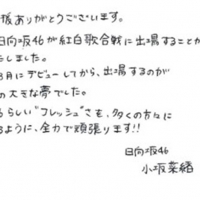 援ありがとうございます。
日向坂46が紅白歌合戦に出場することが
たしました。
3月にデビューしてから、出場するのが
の大きな夢でした。
らしい"フレッシュ"さを、多くの方々に
るように、全力で頑張ります!!
日向坂46
小坂菜緒